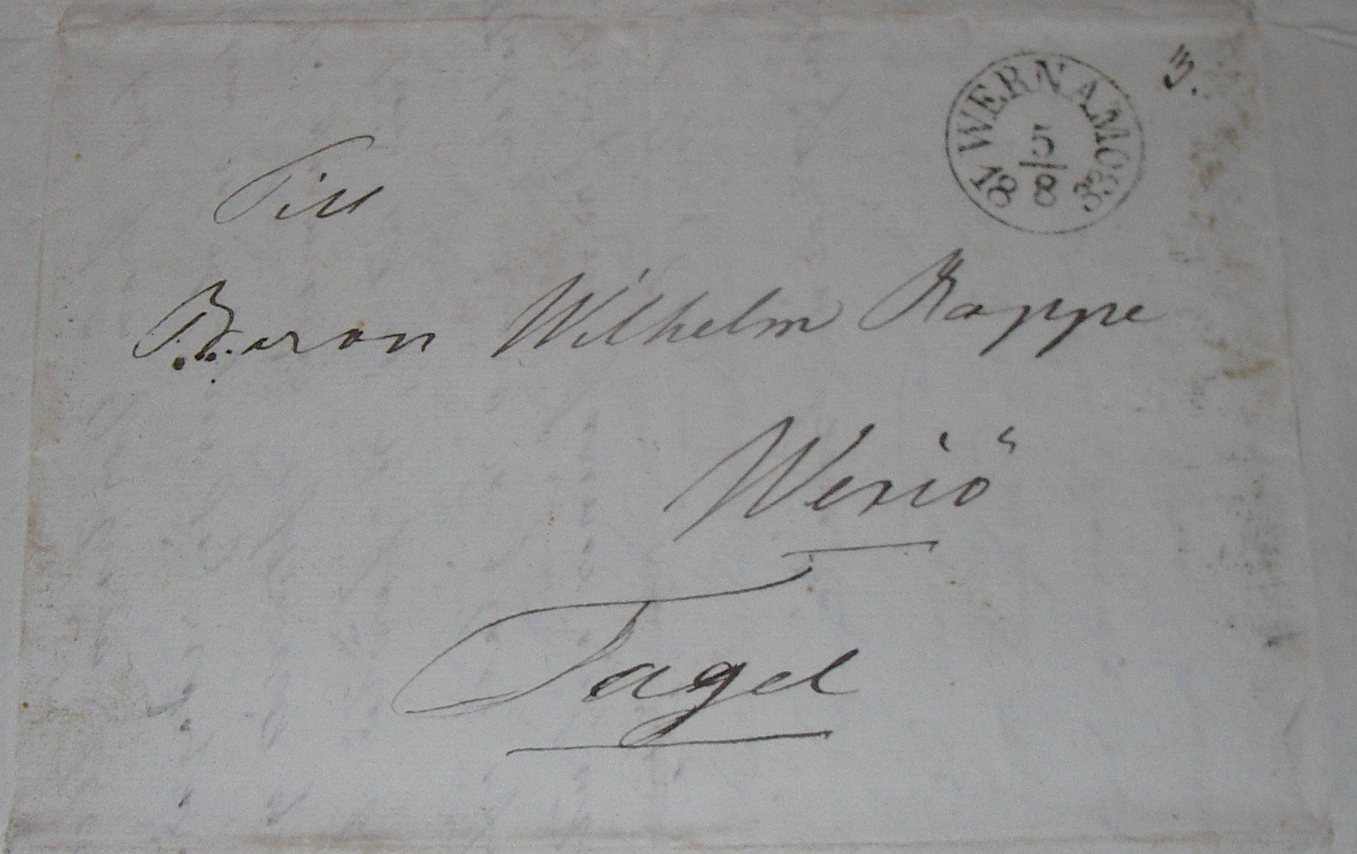 WERNAMO
5/8
18 33
3.
Till
Baron Wilhelm Rappe
Wexiö
Tagel